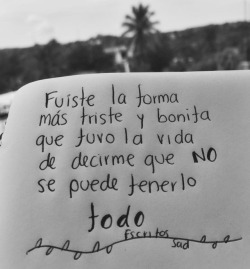 Fuiste la forma
más triste y bonita
que tuvo la vida
de decirme que NO
se puede tenerlo
todo
Escritos
Sad